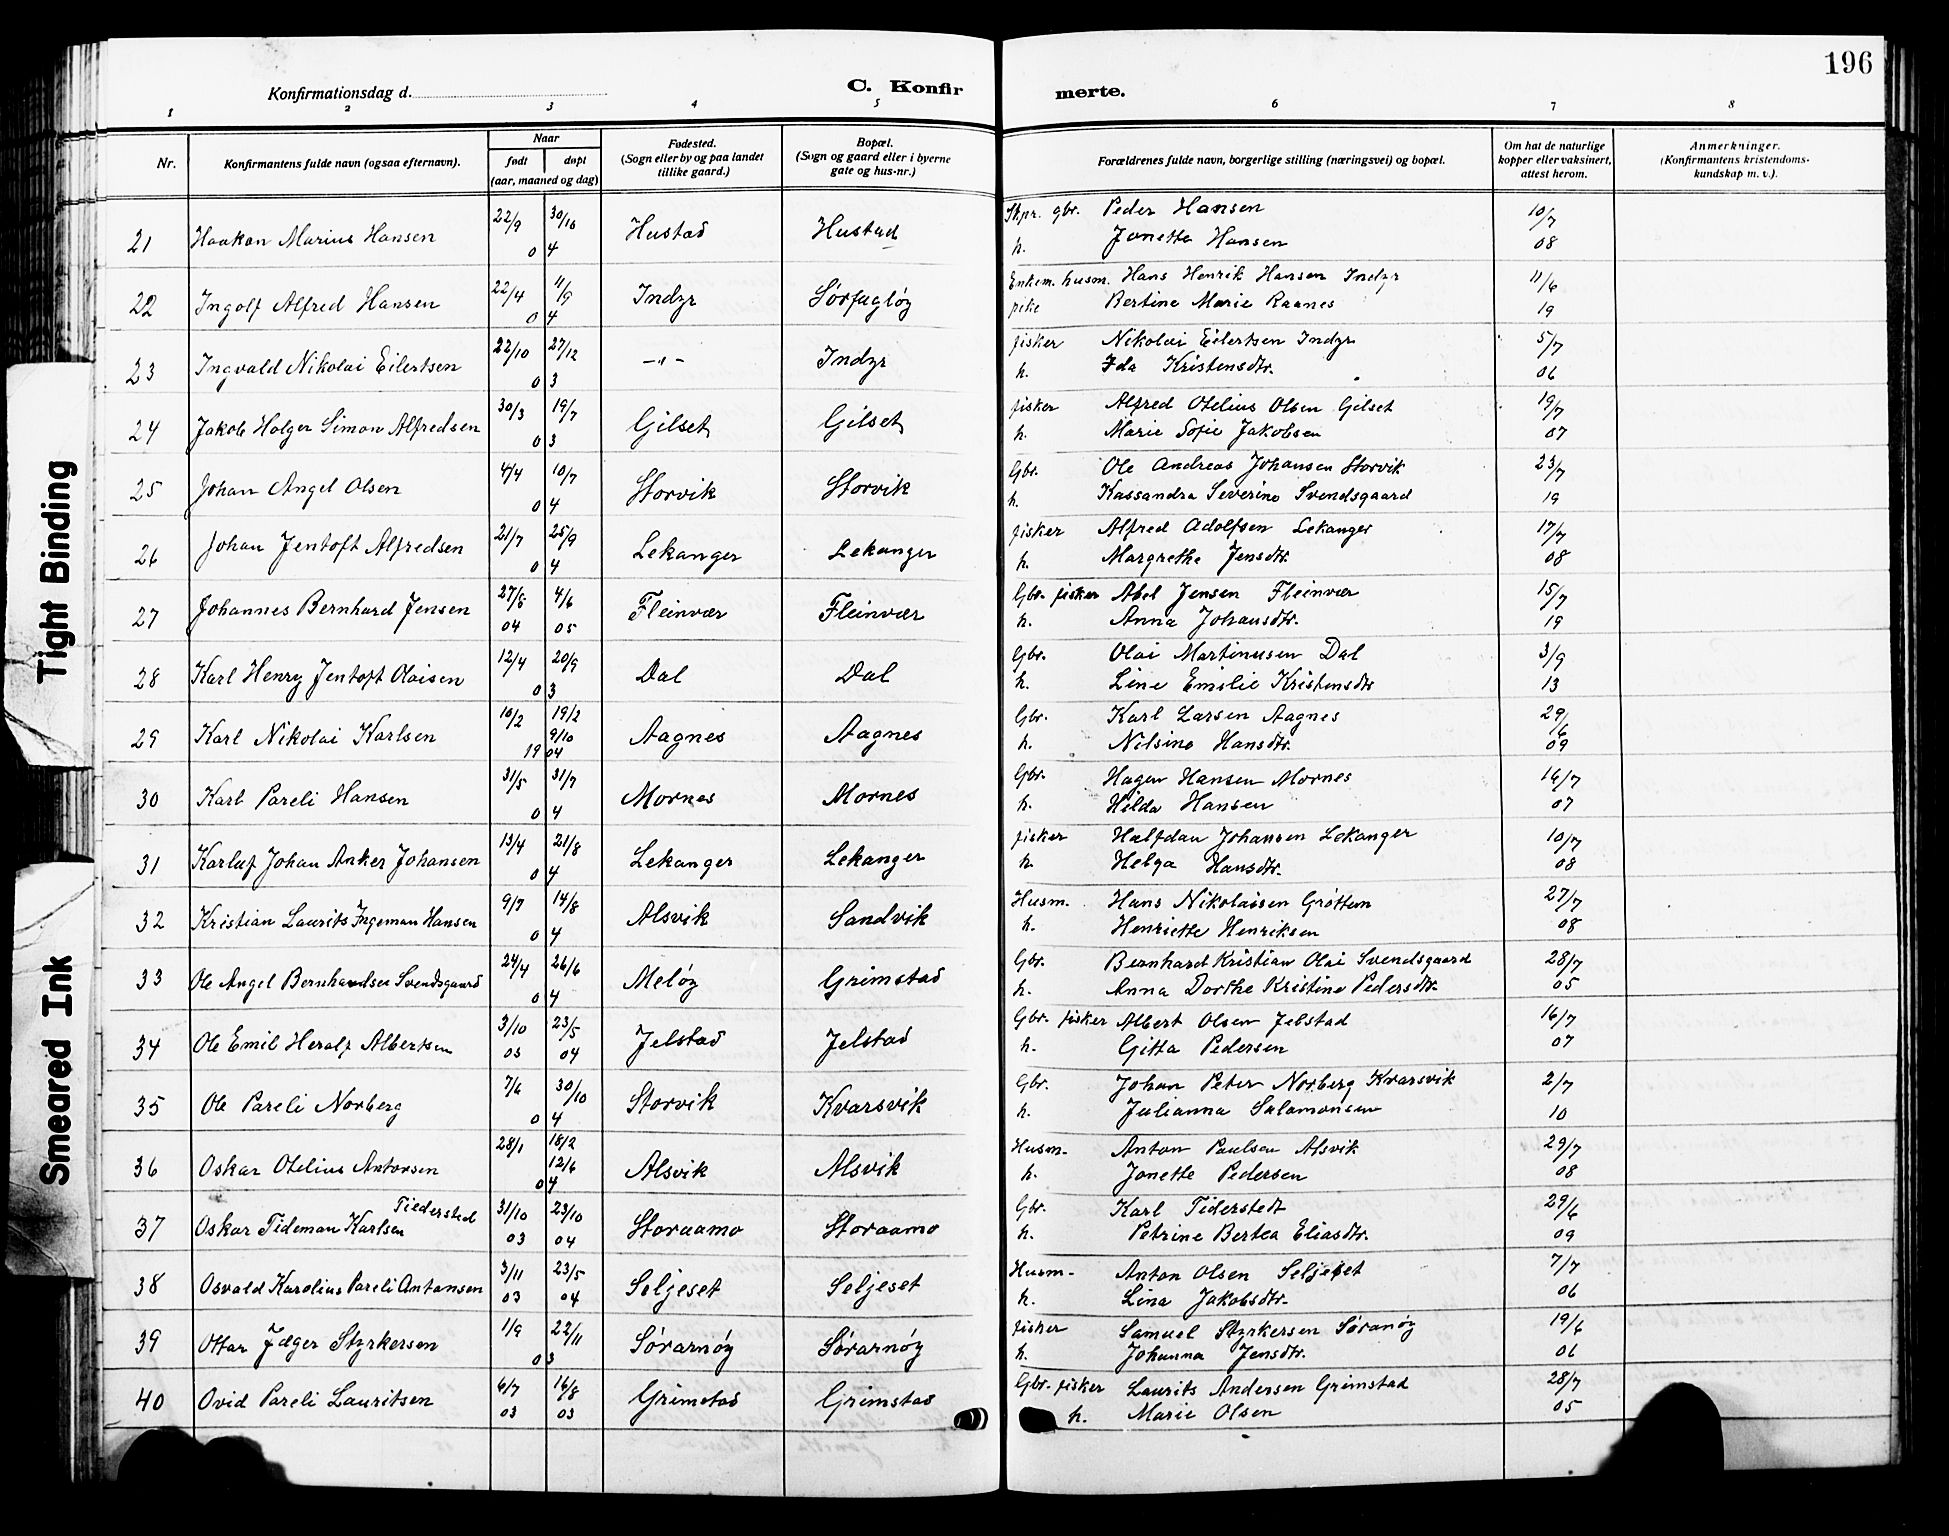 196
Konfirmationsdag d.
C. Konfir
merte.
1 2 3 4 5 6 7 8
Nr.
Konfirmantens fulde navn (ogsaa efternavn).
Naar
født døpt
(aar, maaned og dag)
Fødested.
(Sogn eller by og paa landet
tillike gaard.)
Bopæl.
(Sogn og gaard eller i byerne
gate og hus-nr.)
Forældrenes fulde navn, borgerlige stilling (næringsvei) og bopæl.
Om hat de naturlige
kopper eller vaksinert,
attest herom.
Anmerkninger.
(Konfirmantens kristendoms-
kundskap m. v.).
22/9 30/10 Skpr. gbr. Peder Hansen 10/7
21 Haakon Marius Hansen 04 Hustad Hustad h. Jonetta Hansen 08
22/4 11/9 Enkem. husm. Hans Henrik Hansen Indyr 11/6
22 Ingolf Alfred Hansen 04 Indyr Sørfugløy pike Bertine Marie Raanes 19
22/10 27/12 fisker Nikolai Eilertsen Indyr 5/7
23 Ingvald Nikolai Eilertsen 03 -"- Indyr h. Ida Kristensdtr. 06
30/3 19/7 fisker Alfred Otelius Olsen Gilset 19/7
24 Jakob Holger Simon Alfredsen 03 Gilset Gilset h. Marie Sofie Jakobsen 07
4/4 10/7 Gbr. Ole Andreas Johansen Storvik 23/7
25 Johan Angel Olsen 04 Storvik Storvik h. Kassandra Severine Svendsgaard 19
21/7 25/9 fisker Alfred Adolfsen Lekanger 17/7
26 Johan Jentoft Alfredsen 04 Lekanger Lekanger h. Margrethe Jensdtr. 08
27/8 4/6 Gbr. fisker Abel Jensen Fleinvær 15/7
27 Johannes Bernhard Jensen 04 05 Fleinvær Fleinvær h. Anna Johansdtr. 19
12/4 20/9 Gbr. Olai Martinusen Dal 3/9
28 Karl Henry Jentoft Olaisen 03 Dal Dal h. Line Emilie Kristensdtr 13
10/2 19/2 9/10 Gbr. Karl Larsen Aagnes 29/6
29 Karl Nikolai Karlsen 1904 Aagnes Aagnes h. Nilsine Hansdtr. 09
31/5 31/7 Gbr. Hagen Hansen Mornes 16/7
30 Karl Pareli Hansen 04 Mornes Mornes h. Hilda Hansen 07
13/4 21/8 fisker Halfdan Johansen Lekanger 10/7
31 Karluf Johan Anker Johansen 04 Lekanger Lekanger h. Helga Hansdtr. 08
9/7 14/8 Husm. Hans Nikolaisen Grøttem 27/7
32 Kristian Laurits Ingeman Hansen 04 Alsvik Sandvik h. Henriette Henriksen 08
24/4 26/6 Gbr. Bernhard Kristian Olai Svendsgaard 28/7
33 Ole Angel Bernhardsen Svendsgaard 04 Meløy Grimstad h. Anna Dorthe Kristine Pedersdtr. 05
3/10 23/5 Gbr. fisker Albert Olsen Jelstad 16/7
34 Ole Emil Heralf Albertsen 03 04 Jelstad Jelstad h. Gitta Pedersen 07
7/6 30/10 Gbr. Johan Peter Norberg Kvarsvik 2/7
35 Ole Pareli Norberg 04 Storvik Kvarsvik h. Julianna Salamonsen 10
28/1 18/2 12/6 Husm. Anton Paulsen Alsvik 29/7
36 Oskar Otelius Antonsen 04 Alsvik Alsvik h. Jonette Pedersen 08
Tiedersted 31/10 23/10 Gbr. Karl Tiderstedt 29/6
37 Oskar Tideman Karlsen 03 04 Storaamo Storaamo h. Petrine Bertea Eliasdtr. 09
3/11 23/5 Husm. Anton Olsen Seljeset 7/7
38 Osvald Karolius Pareli Antonsen 03 04 Seljeset Seljeset h. Lina Jakobsdtr. 06
1/9 22/11 fisker Samuel Styrkersen Sørarnøy 19/6
39 Ottar Jæger Styrkersen 03 Sørarnøy Sørarnøy h. Johanna Jensdtr. 06
6/7 16/8 Gbr. fisker Laurits Andersen Grimstad 28/7
40 Ovid Pareli Lauritsen 03 03 Grimstad Grimstad h. Marie Olsen 05
Tight Binding
Smeared Ink